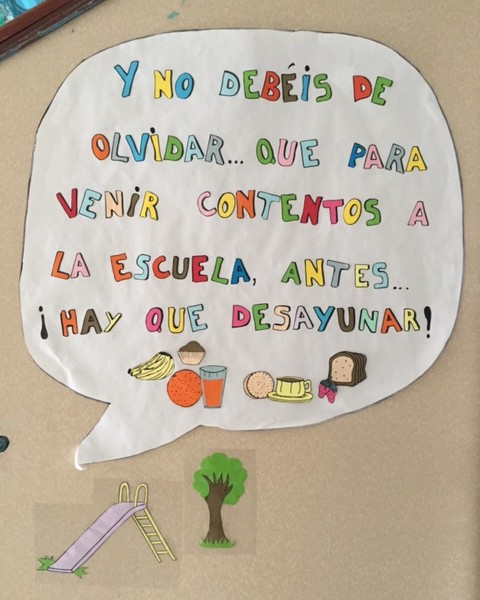 Y NO DEBÉIS DE
OLVIDAR... QUE PARA
VENIR CONTENTOS A
LA ESCUELA, ANTES...
¡HAY QUE DESAYUNAR!